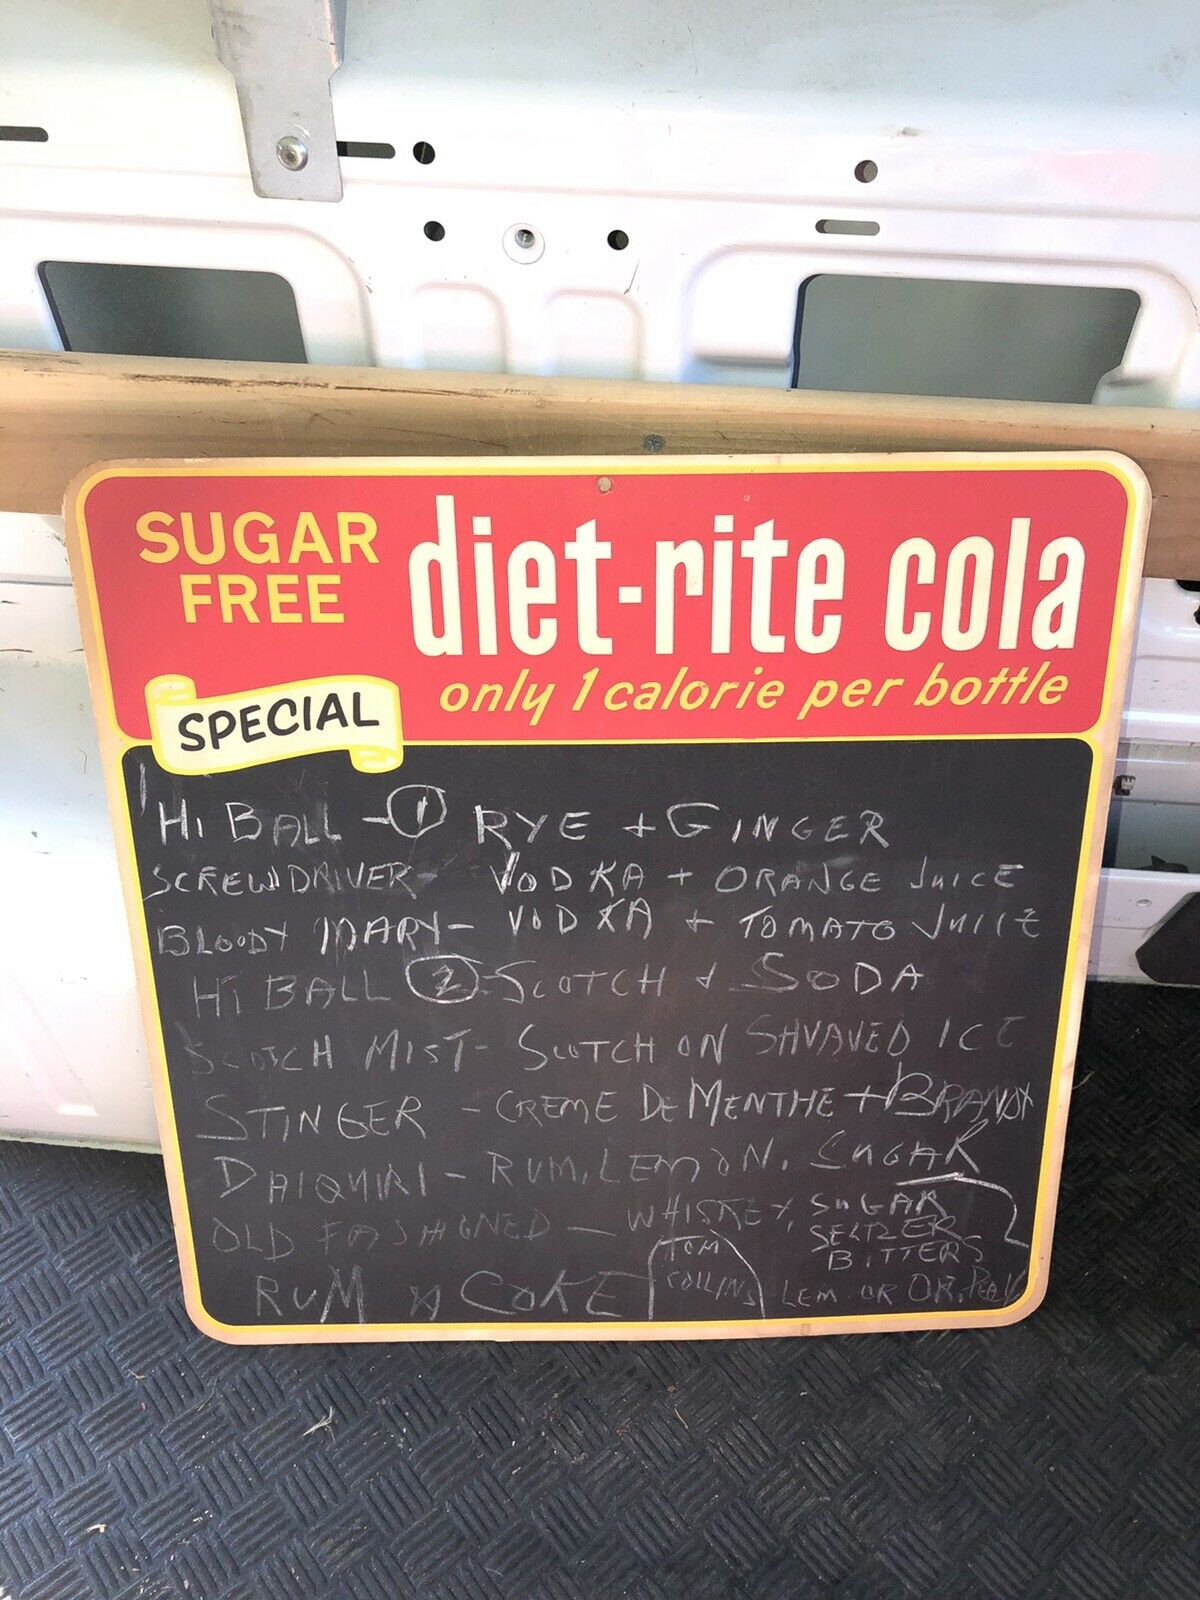 SUGAR FREE
diet-rite cola
only 1 calorie per bottle
SPECIAL
HI BALL - 1 RYE + GINGER
SCREWDRIVER - VODKA + ORANGE JUICE
BLOODY MARY - VODKA + TOMATO JUICE
HI BALL 2 - SCOTCH + SODA
SCOTCH MIST - SCOTCH ON SHVAVED ICE
STINGER - CREME DE MENTHE + BRANDY
DAIQUIRI - RUM, LEMON, SUGAR
OLD FASHIONED - WHISKEY, SUGAR
SELTZER
BITTERS
RUM & COKE
TOM
COLLINS
LEM. OR OR. PEEL